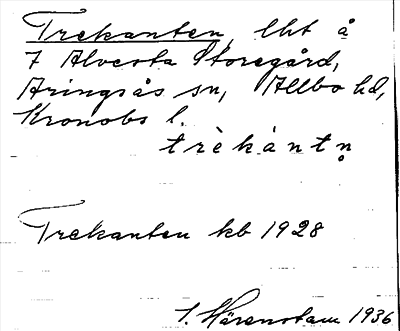 Trekanten, lht å
7 Alvesta Storegård,
Aringsås sn, Allbo hd,
Kronobs l.
trèkàntn̥
Trekanten kb 1928
S. Härenstam 1936